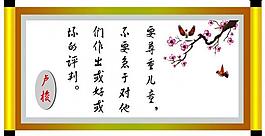 要尊重儿童，
不要急于对他
们作出或好或
坏的评判。
卢梭